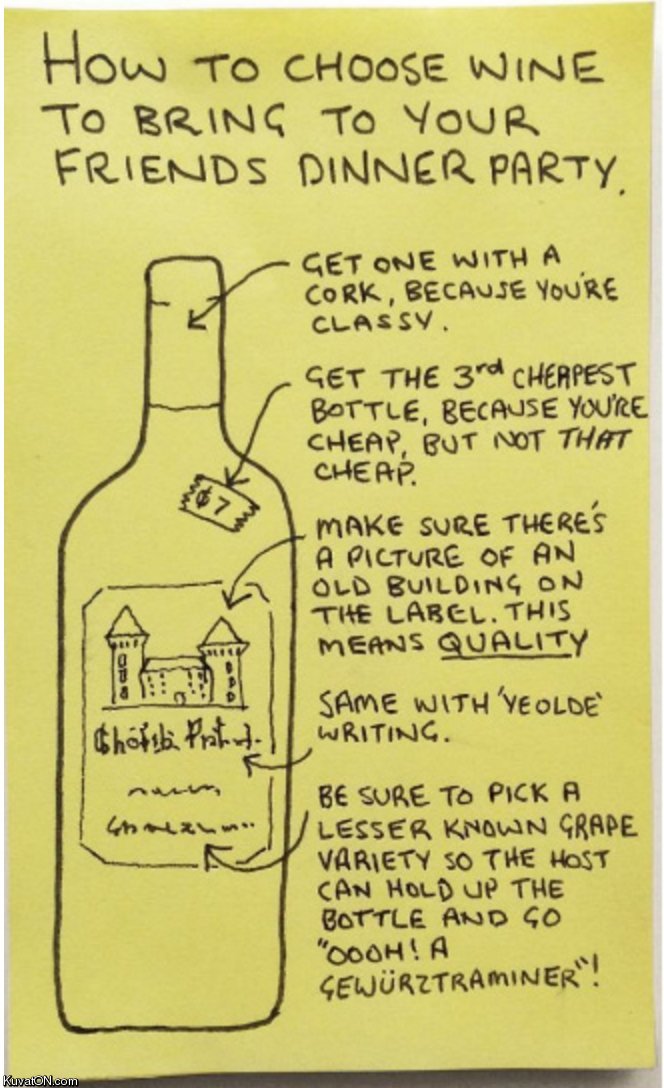 HOW TO CHOOSE WINE
TO BRING TO YOUR
FRIENDS DINNER PARTY.
GET ONE WITH A
CORK, BECAUSE YOU'RE
CLASSY.
GET THE 3rd CHEAPEST
BOTTLE, BECAUSE YOU'RE
CHEAP, BUT NOT THAT
CHEAP.
$7
MAKE SURE THERE'S
A PICTURE OF AN
OLD BUILDING ON
THE LABEL. THIS
MEANS QUALITY
SAME WITH 'YEOLDE'
WRITING.
BE SURE TO PICK A
LESSER KNOWN GRAPE
VARIETY SO THE HOST
CAN HOLD UP THE
BOTTLE AND GO
"OOOH! A
GEWÜRZTRAMINER"!
KuvatON.com